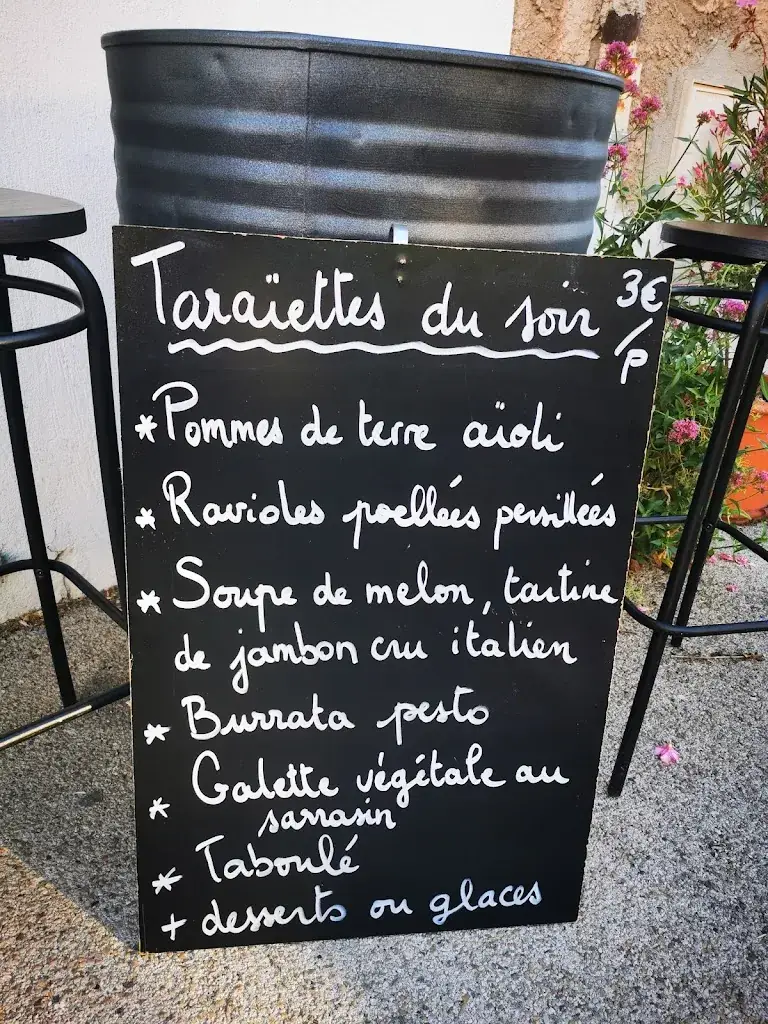 Taraïettes du soir 3€/p
*Pommes de terre aïoli
* Ravioles poellées persillées
* Soupe de melon, tartine
de jambon cru italien
* Burrata pesto
* Galette végétale au
sarrasin
* Taboulé
+ desserts ou glaces